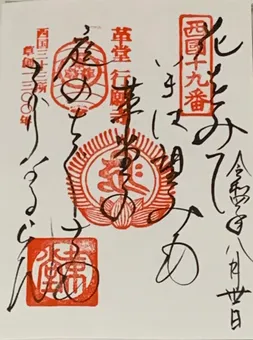 西國十九番
花をみて
いまは望みも
革堂の
庭のちくさも
さかりなるらん
八月廿日
革堂行願寺
西国三十三所
草創一三〇〇年